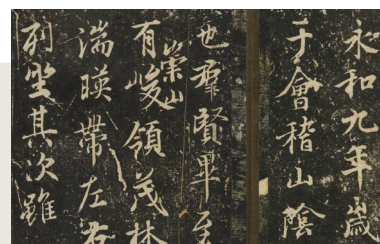 永和九年歲
于會稽山陰
也羣賢畢至
有崇山峻領茂林
湍暎帶左右
列坐其次雖